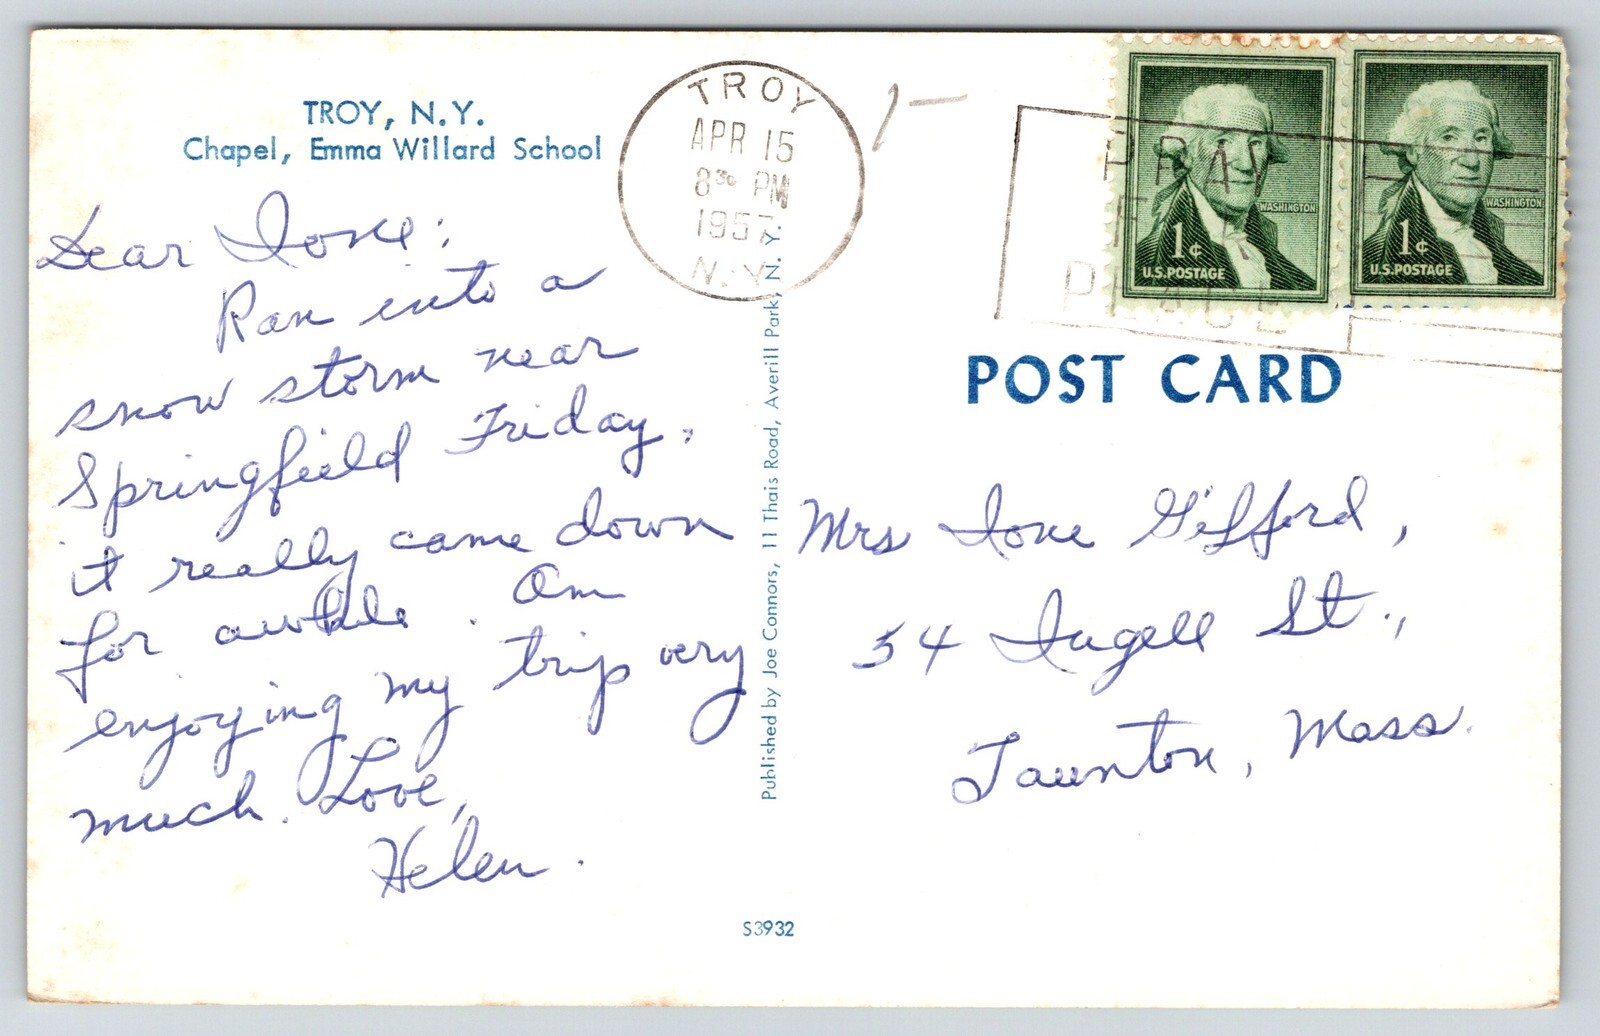 TROY, N.Y.
Chapel, Emma Willard School
Dear Ione:
Ran into a
snow storm near
Springfield Friday,
it really came down
for awhile. Am
enjoying my trip very
much. Love,
Helen.
TROY
APR 15
8 30 PM
1957
N.Y.
PRAY
FOR
PEACE
WASHINGTON
1¢
U.S. POSTAGE
WASHINGTON
1¢
U.S. POSTAGE
Published by Joe Connors, 11 Thais Road, Averill Park, N. Y.
POST CARD
Mrs Ione Gifford,
54 Ingell St.,
Taunton, Mass.
S3932